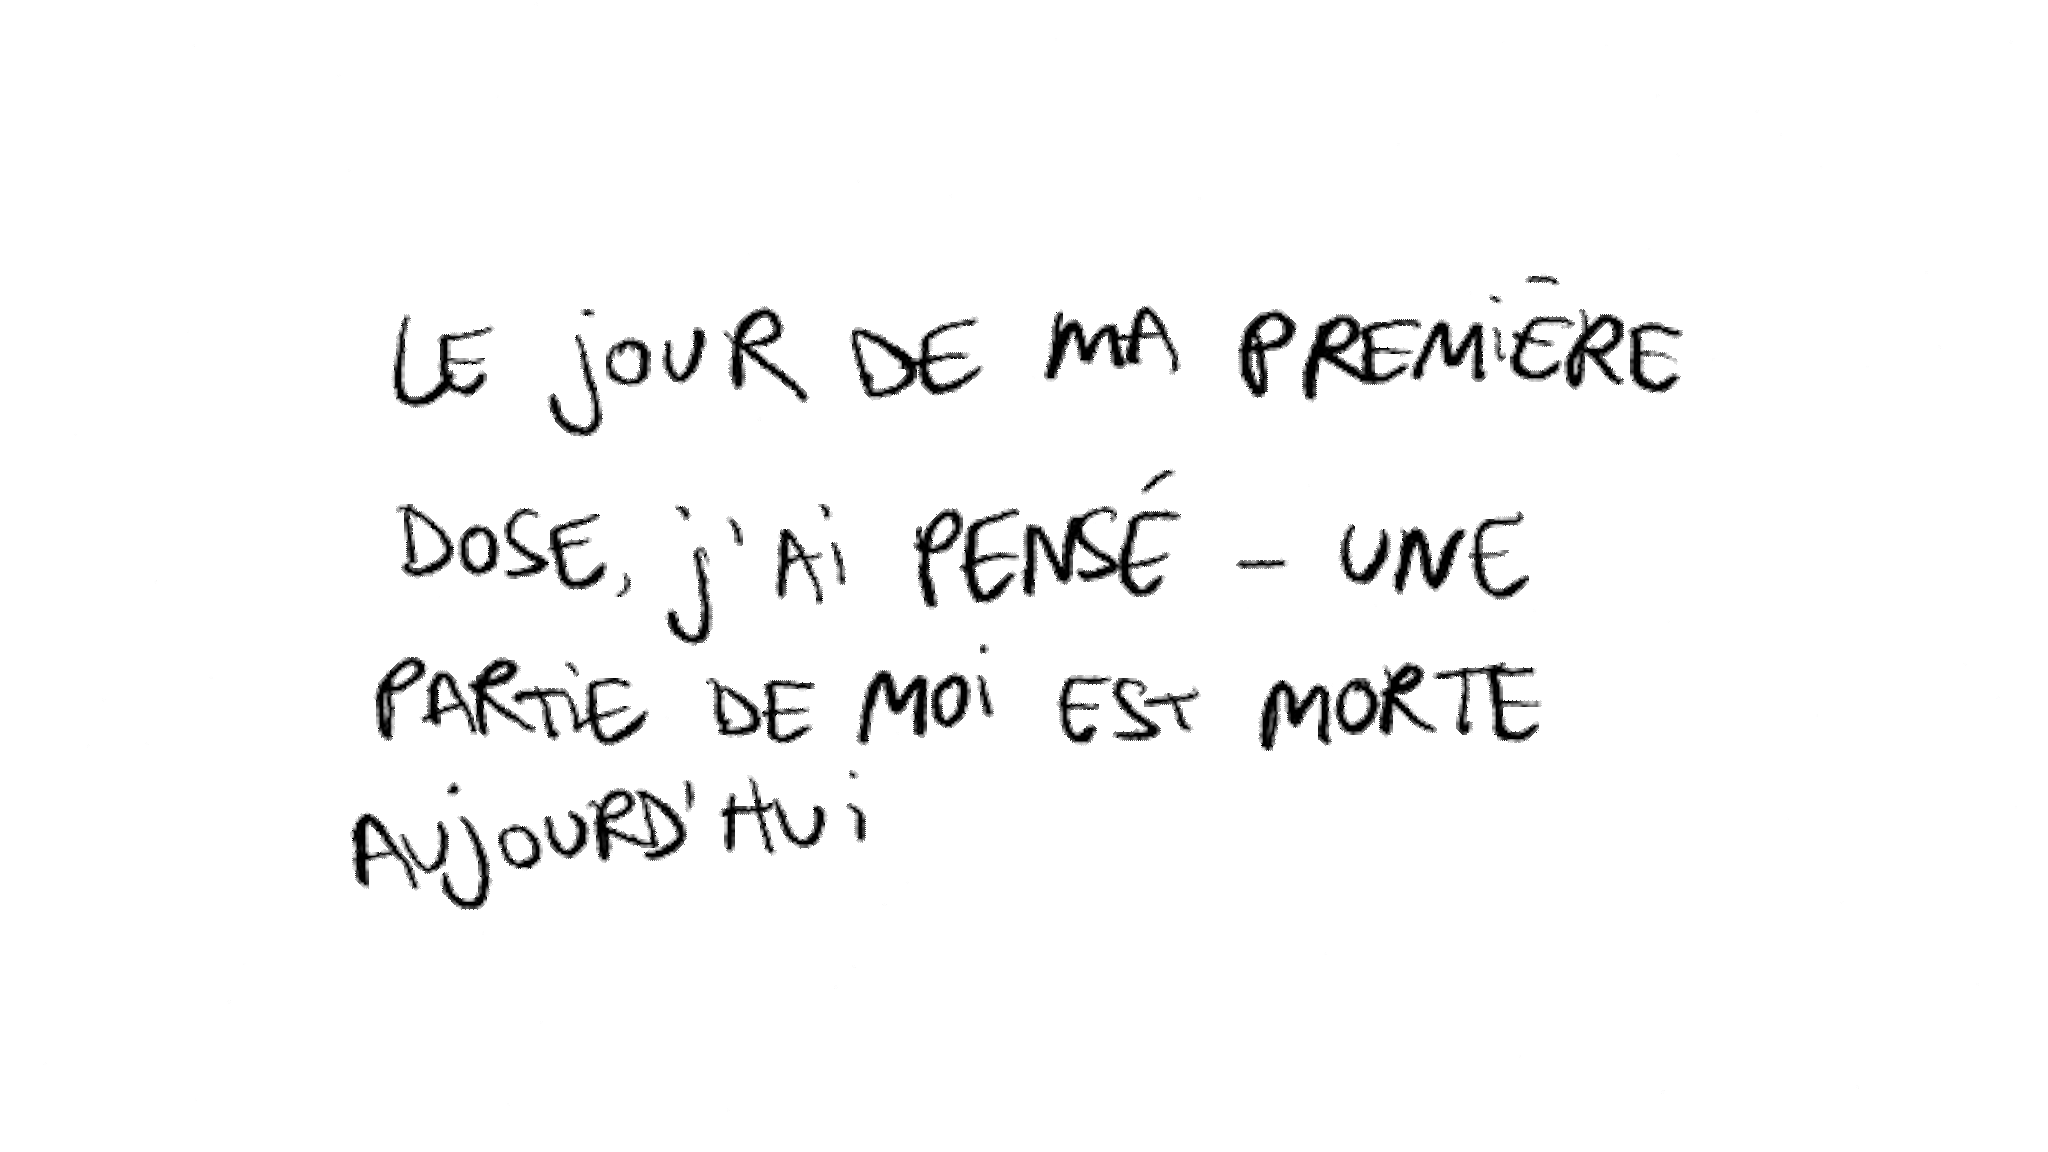 LE JOUR DE MA PREMIÈRE
DOSE, J'AI PENSÉ – UNE
PARTIE DE MOI EST MORTE
AUJOURD'HUI